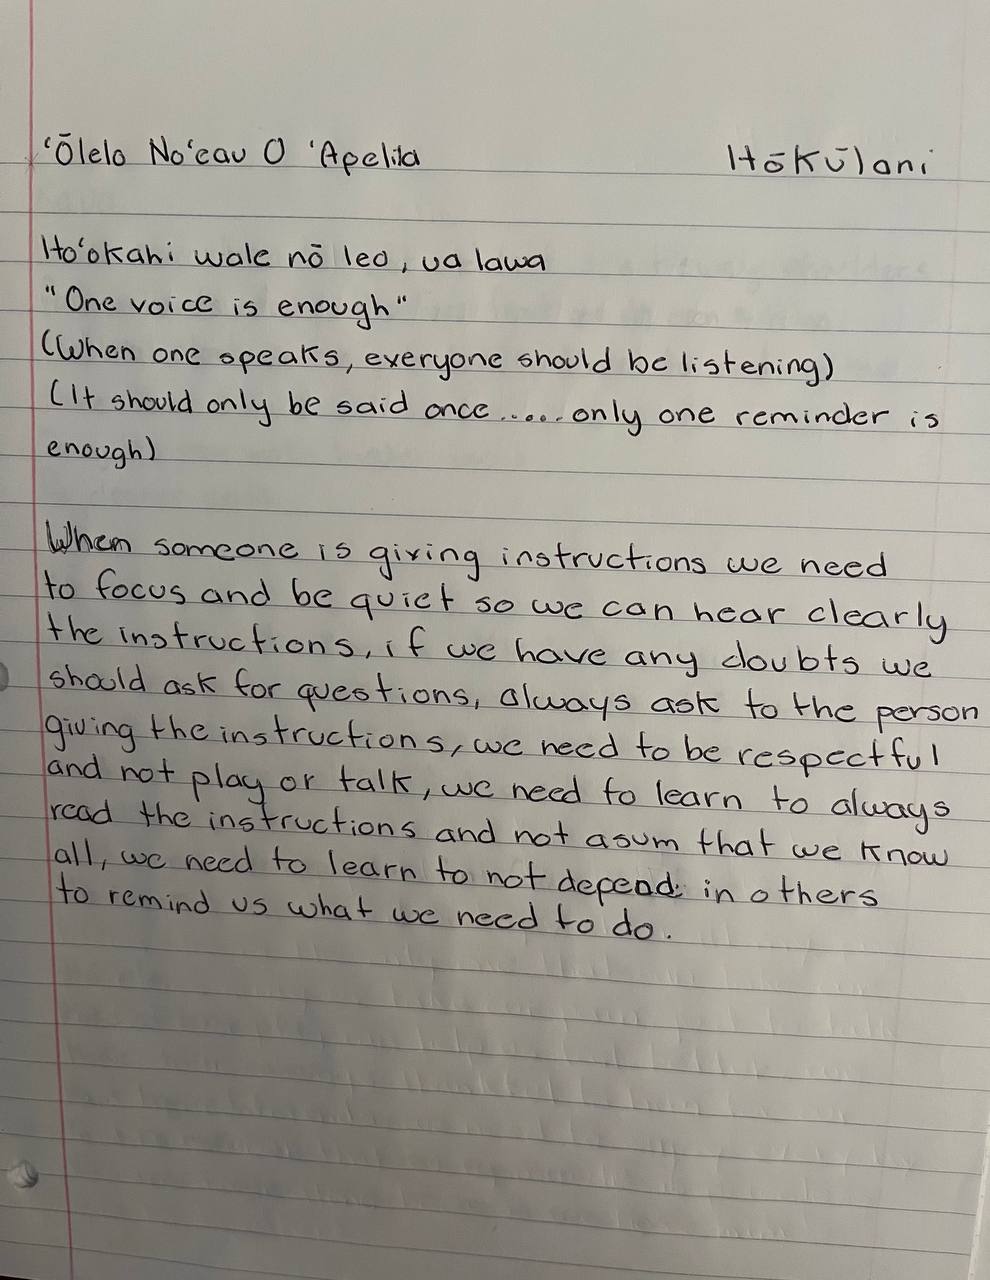 ʻŌlelo Noʻeau O ʻApelila Hōkūlani
Hoʻokahi wale nō leo, ua lawa
"One voice is enough"
(When one speaks, everyone should be listening)
(It should only be said once.....only one reminder is
enough)
When someone is giving instructions we need
to focus and be quiet so we can hear clearly
the instructions, if we have any doubts we
should ask for questions, always ask to the person
giving the instructions, we need to be respectful
and not play or talk, we need to learn to always
read the instructions and not asum that we know
all, we need to learn to not depend in others
to remind us what we need to do.